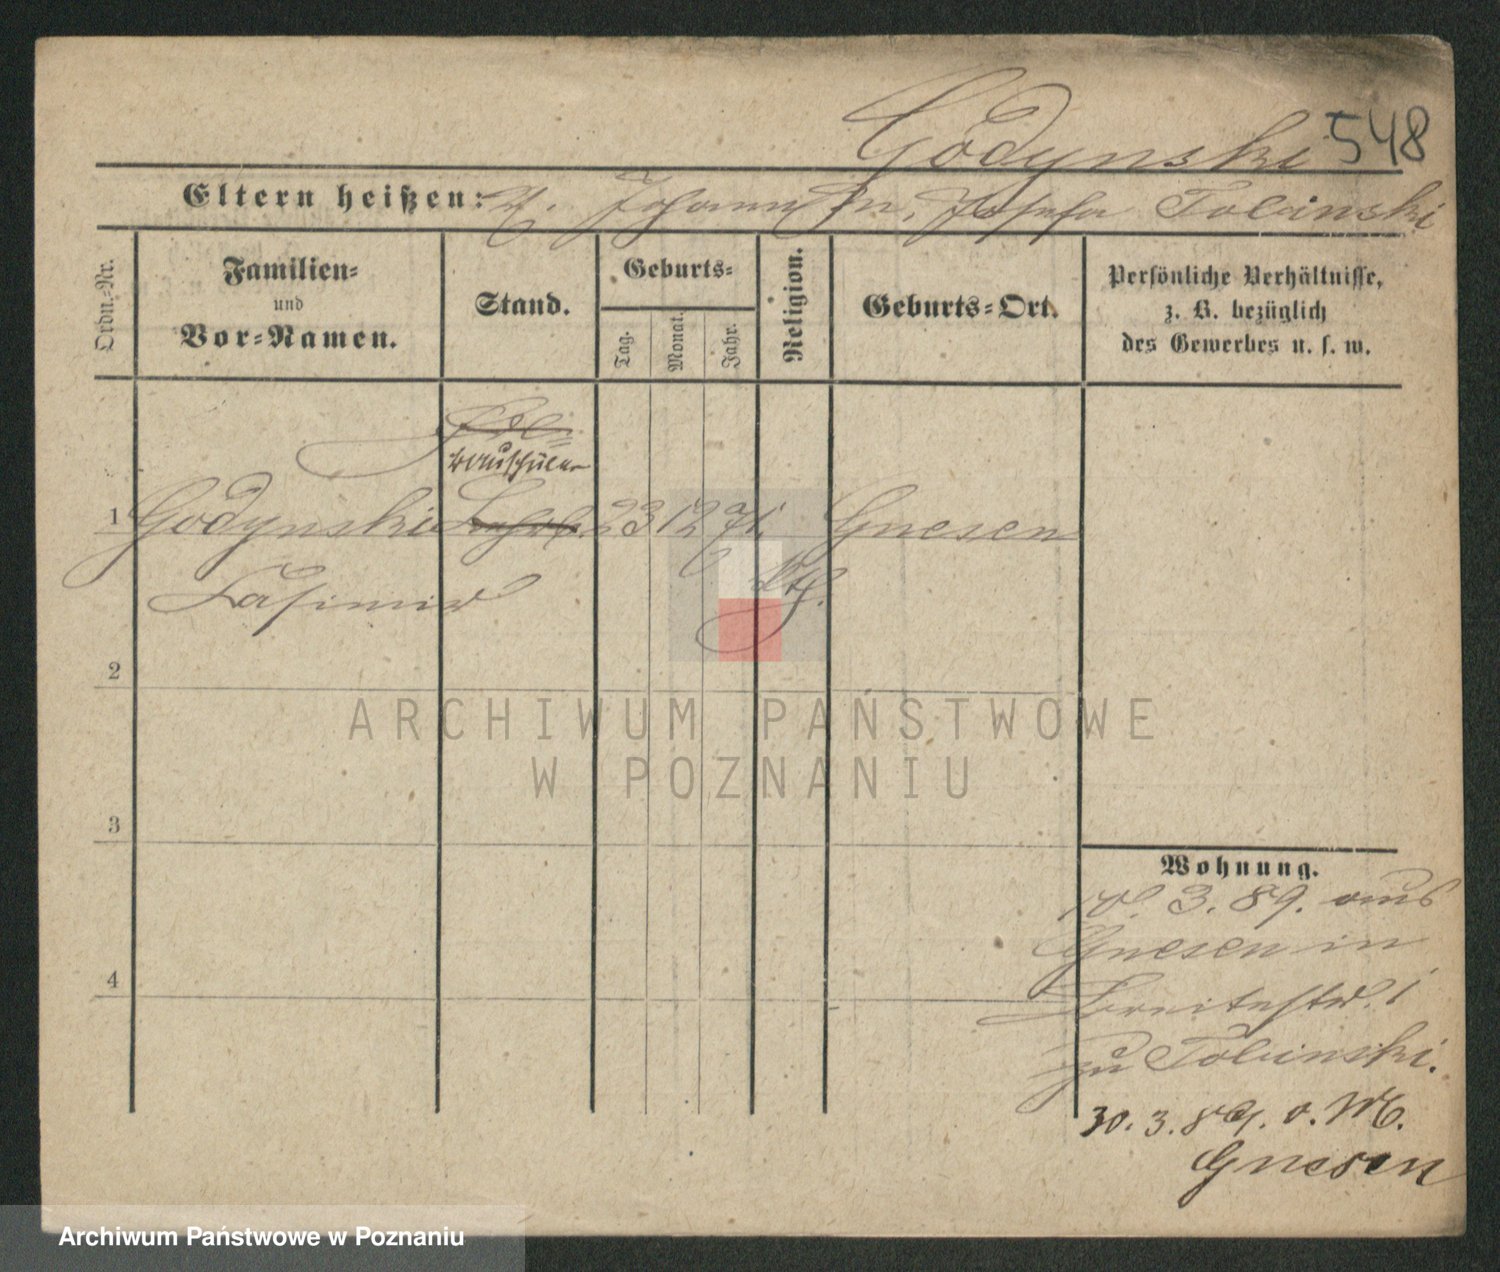 Godynski 548
Eltern heißen: V. Johann M. Josefa Tobinski
Ordn.-Nr.
Familien-
und
Vor-Namen.
Stand.
Geburts-
Tag.
Monat.
Jahr.
Religion.
Geburts-Ort.
Persönliche Verhältnisse,
z. B. bezüglich
des Gewerbes u. s. w.
1 Godynski 23 12 71. Gnesen
Casimir kth.
2
3
4
Wohnung.
3. 89. aus
Gnesen in
Breitestr. 1
zu Tobinski.
30. 3. 89. v. M.
Gnesen
ARCHIWUM PAŃSTWOWE
W POZNANIU
Archiwum Państwowe w Poznaniu